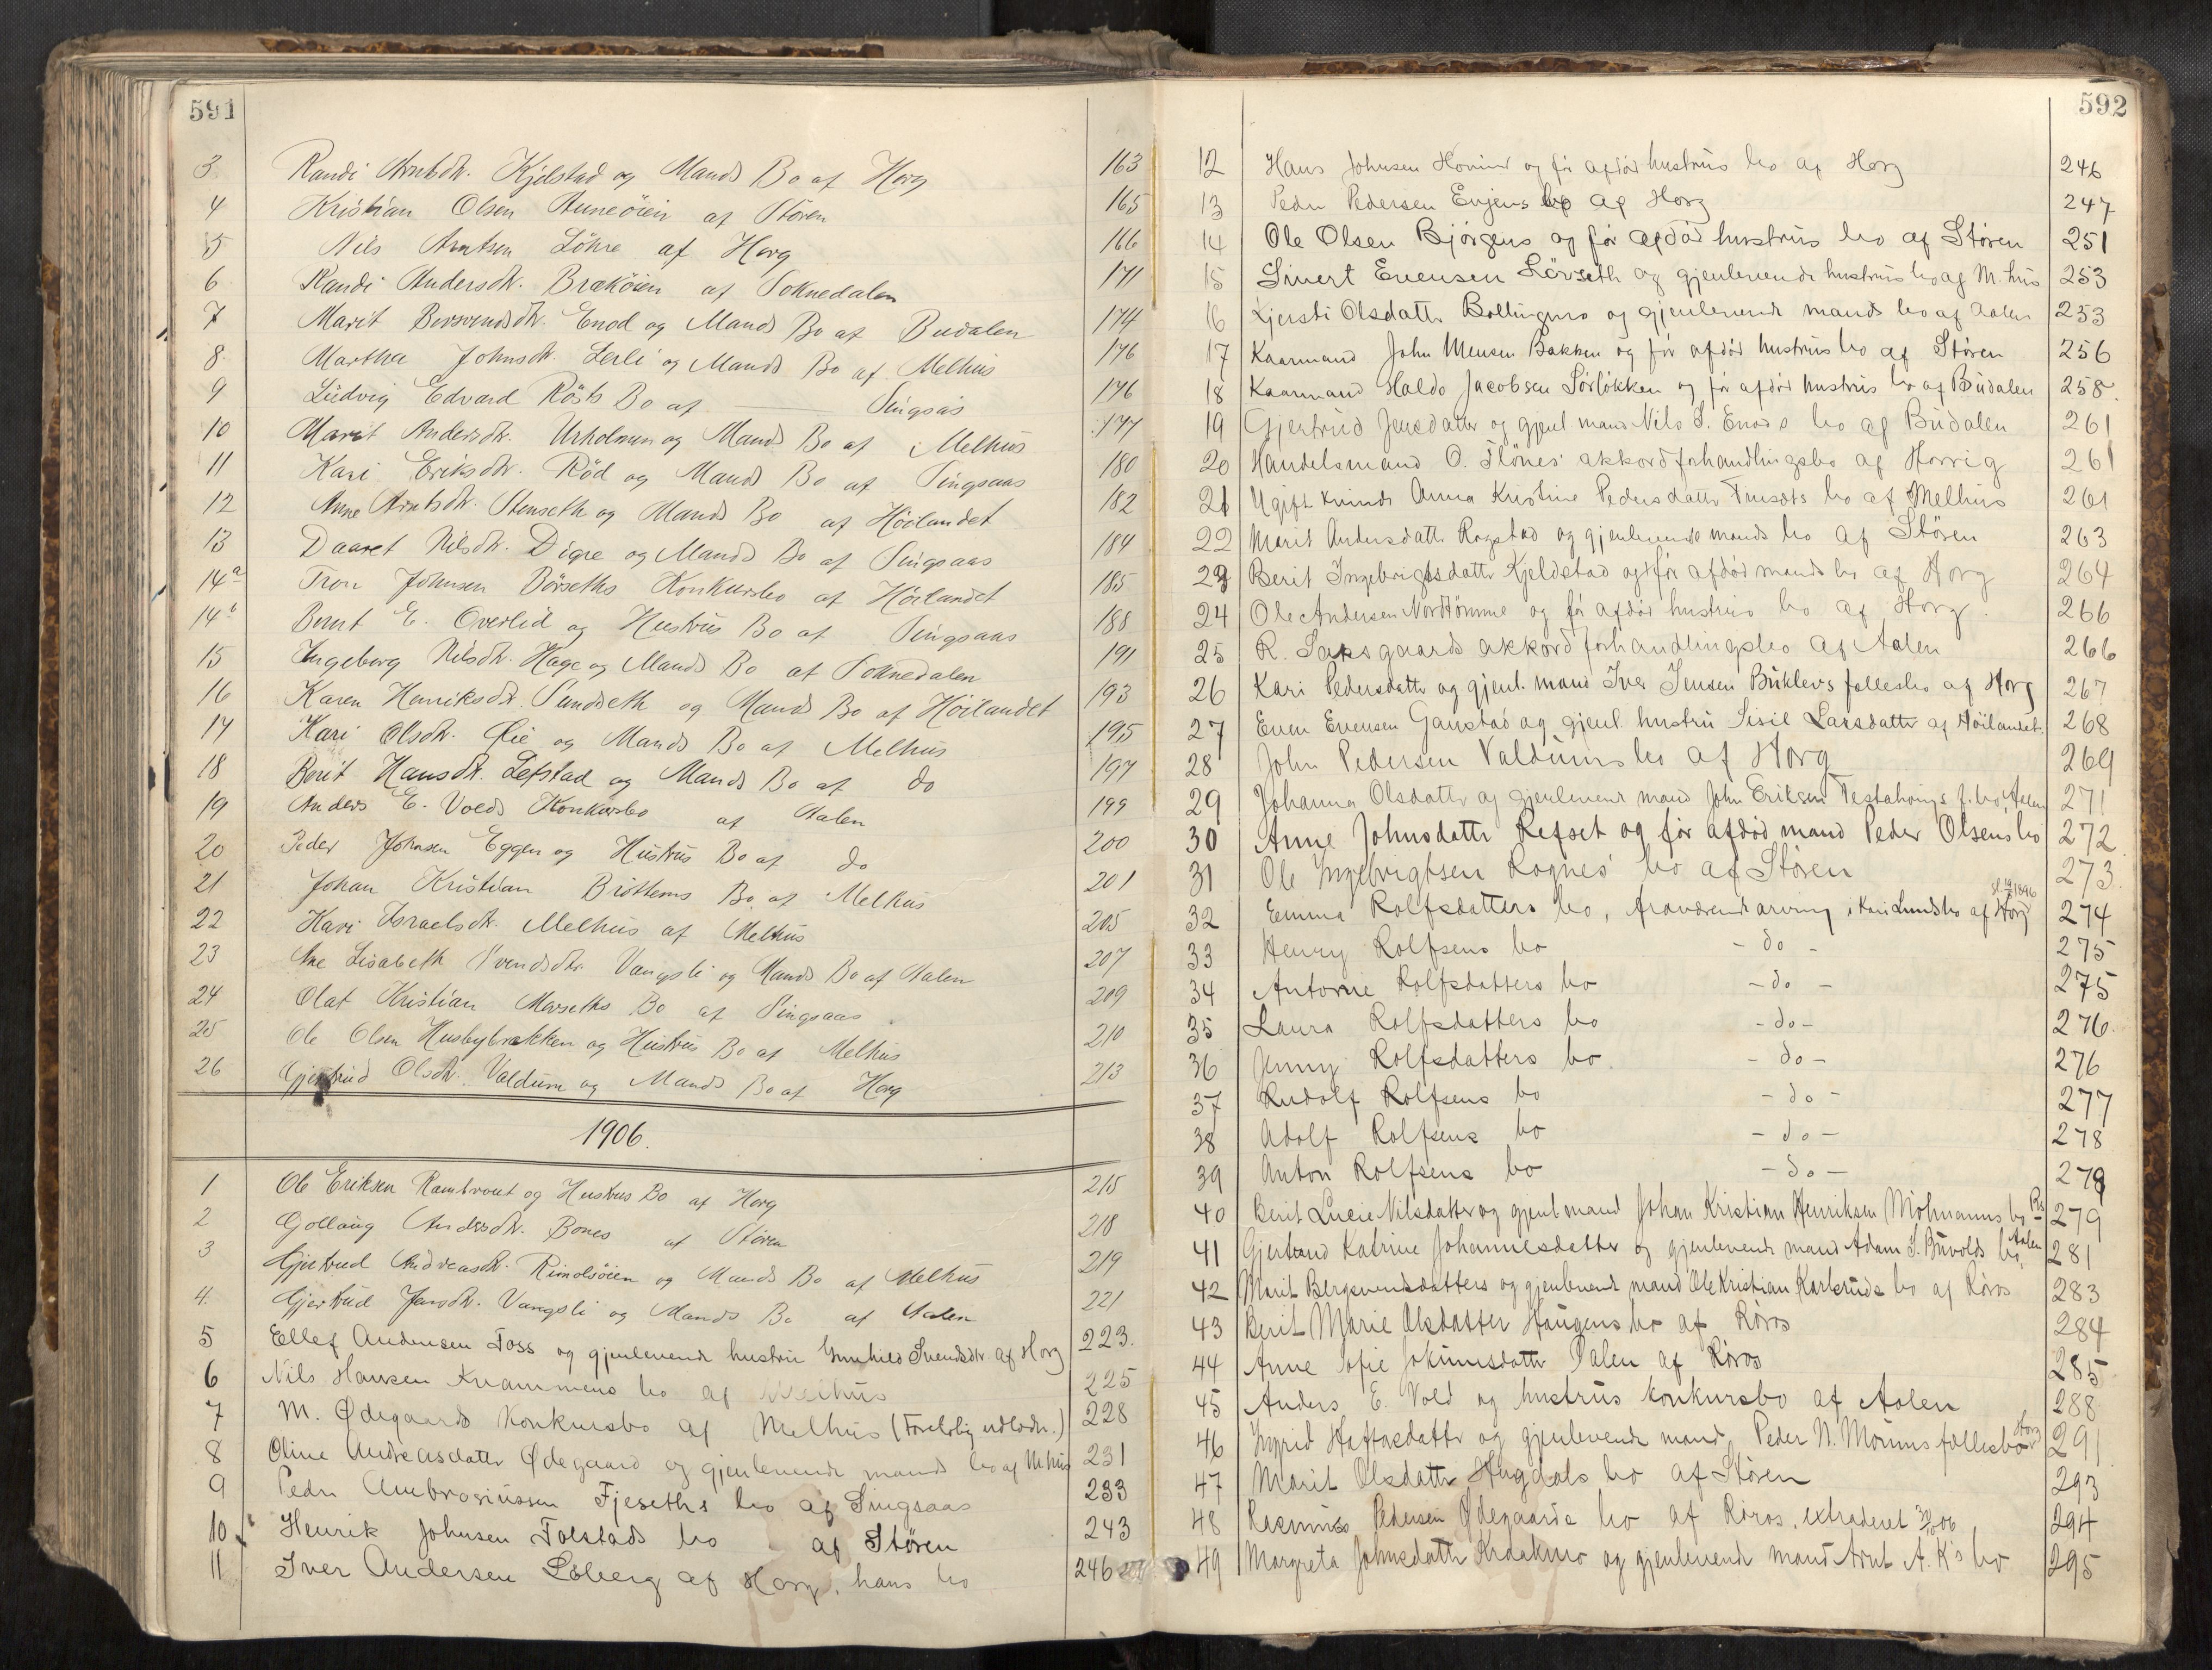 591
3 Randi Arntsdtr. Kjelstad og Mands Bo af Horg 163
4 Kristian Olsen Auneöien af Stören 165
5 Nils Arntsen Löhre af Horg 166
6 Randi Andersdtr. Bræköien af Soknedalen 171
7 Marit Bersvendsdtr. Enod og Mands Bo af Budalen 174
8 Martha Johnsdtr. Lerli og Mands Bo af Melhus 176
9 Ludvig Edvard Rösts Bo af Singsås 176
10 Marit Andersdtr. Urholmen og Mands Bo af Melhus 177
11 Kari Eriksdtr. Röd og Mands Bo af Singsaas 180
12 Ane Arntsdtr. Stenseth og Mands Bo af Höilandet 182
13 Daaret Nilsdtr. Digre og Mands Bo af Singsaas 184
14a Tron Johnsen Börseths Konkursbo af Höilandet 185
14b Bernt E. Overlid og Hustrus Bo af Singsaas 188
15 Ingeborg Nilsdtr. Hage og Mands Bo af Soknedalen 191
16 Karen Henriksdtr. Sundseth og Mands Bo af Höilandet 193
17 Kari Olsdtr. Øie og Mands Bo af Melhus 195
18 Berit Hansdtr. Lefstad og Mands Bo af do 197
19 Anders E. Volds Konkursbo af Aalen 199
20 Peder Johnsen Eggen og Hustrus Bo af do 200
21 Johan Kristian Bröttems Bo af Melhus 201
22 Kari Israelsdtr. Melhus af Melhus 205
23 Ane Lisabeth Svendsdtr. Vangsli og Mands Bo af Aalen 207
24 Olaf Kristian Morseths Bo af Singsaas 209
25 Ole Olsen Husbybrækken og Hustrus Bo af Melhus 210
26 Gjertrud Olsdtr. Valdum og Mands Bo af Horg 213
1906.
1 Ole Eriksen Rambraut og Hustrus Bo af Horg 215
2 Gollaug Andersdtr. Bones af Stören 218
3 Gjertrud Andreasdtr. Rimolsöien og Mands Bo af Melhus 219
4. Gjertrud Jansdtr. Vangsli og Mands Bo af Aalen 221
5 Ellef Andersen Foss og gjenlevende hustru Gunhild Svendsdtr. af Horg 223.
6 Nils Hansen Kvammens bo af Melhus 225
7 M. Ødegaards Konkursbo af Melhus (Foreløbig udlodn.) 228
8 Oline Andreasdatter Ødegaard og gjenlevende mands bo af Mhus 231
9 Peder Ambrosiussen Fjeseths bo af Singsaas 233
10 Henrik Johnsen Folstads bo af Støren 243
11 Iver Andersen Løberg af Horg, hans bo 246
592
12 Hans Johnsen Hovind og før afdød hustrus bo af Horg 246
13 Peder Pedersen Evjens bo af Horg 247
14 Ole Olsen Bjørgens og før afdød hustrus bo af Støren 251
15 Sivert Evensen Løvseth og gjenlevende hustrus bo af M.hus 253
16 Kjersti Olsdatter Bollingmo og gjenlevende mands bo af Aalen 253
17 Kaarmand John Mensen Bakken og før afdød hustrus bo af Støren 256
18 Kaarmand Haldo Jacobsen Sørløkken og før afdød hustrus bo af Budalen 258.
19 Gjertrud Jensdatter og gjenl. mand Nils S. Enods bo af Budalen 261
20 Handelsmand O. Flönes' akkordforhandlingsbo af Horrig 261
21 Ugift kvinde Anna Kristine Pedersdatter bo af Melhus 261
22 Marit Andersdatter Rogstad og gjenlevende mands bo af Støren 263
23 Berit Ingebrigtsdatter Kjeldstad og før afdød mands bo af Horg 264
24 Ole Andersen Nordtömme og før afdød hustrus bo af Horg. 266
25 R. Saksgaards akkordforhandlingsbo af Aalen 266
26 Kari Pedersdatter og gjenl. mand Iver Jensen Buklevs fællesbo af Horg 267
27 Even Evensen Ganstad og gjenl. hustru Sisil Larsdatter af Höilandet. 268
28 John Pedersen Valdums bo af Horg 269
29 Johanna Olsdatter og gjenlevende mand John Eriksen f. bo, Aalen 271
30 Anne Johnsdatter Refset og før afdød mand Peder Olsens bo 272
31 Ole Ingebrigtsen Rognes' bo af Støren 273
32 Emma Rolfsdatters bo, fraværende arving i Kari Lunds bo af Horg 274
33 Henry Rolfsens bo - do - 275
34 Antonie Rolfsdatters bo - do - 275
35 Laura Rolfsdatters bo - do - 276.
36 Jenny Rolfsdatters bo - do - 276
37 Rudolf Rolfsens bo - do - 277
38 Adolf Rolfsens bo - do - 278
39 Anton Rolfsens bo - do - 279
40 Berit Lucie Nilsdatter og gjenl. mand Johan Kristian Henriksen Mølmanns bo Rs 279
41 Gjertrud Katrine Johannesdatter og gjenlevende mand Adam J. Buvolds bo, Aalen 281
42 Marit Bergsvendsdatters og gjenlevende mand Ole Kristian Karlsruds bo af Røros 283
43 Berit Marie Olsdatter Haugens bo af Røros 284
44 Anne Sofie Jokumsdatter Dalen af Røros 285
45 Anders E. Vold og hustrus konkursbo af Aalen 288
46 Ingrid Haftorsdatter og gjenlevende mand Peder N. Moums fællesbo Horg 291
47 Marit Olsdatter Hugdals bo af Støren 293
48 Rasmus Pedersen Ødegaards bo af Røros, extraderet 30/10 06 294
49 Margreta Johnsdatter Kraakmo og gjenlevende mand Arnt A. K's bo 295